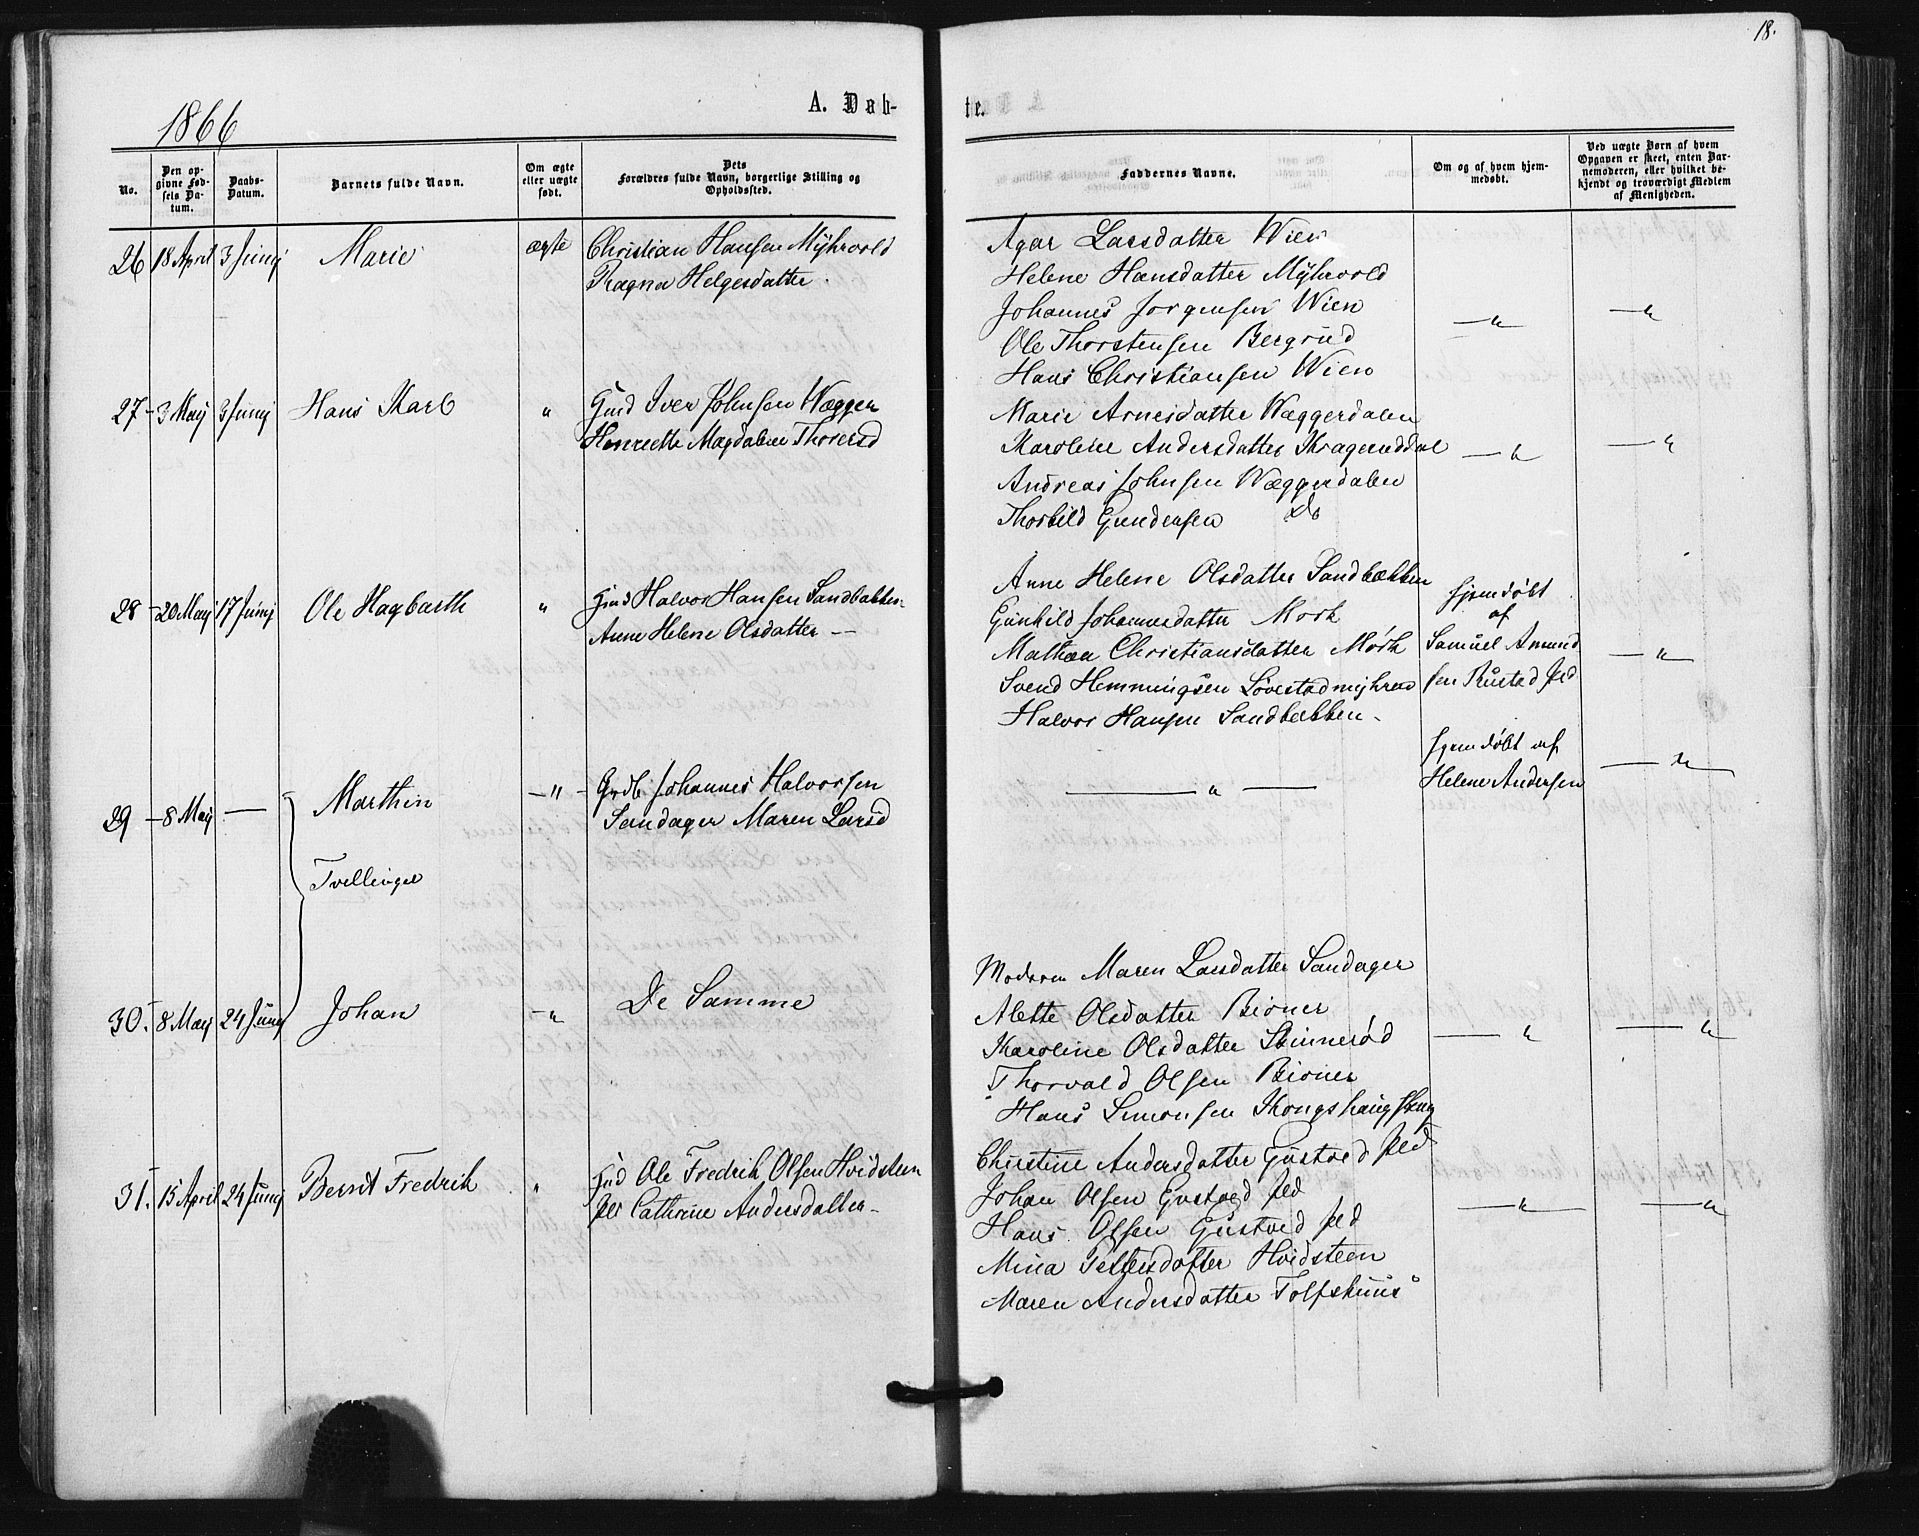 18.
1866
A. Døb-
te.
No.
Den op-
givne Fød-
sels Da-
tum.
Daabs-
Datum.
Barnets fulde Navn.
Om ægte
eller uægte
født.
Dets
Forældres fulde Navn, borgerlige Stilling og
Opholdssted.
Faddernes Navne.
Om og af hvem hjem-
medøbt.
Ved uægte Børn af hvem
Opgaven er skeet, enten Bar-
nemoderen, eller hvilket be-
kjendt og troværdigt Medlem
af Menigheden.
26 18 April 3 Junij Marie ægte Christian Hansen Mÿhrvold
Ragna Helgesdatter.
Agar Larsdatter Wien
Helene Hansdatter Mÿhrvold
Johannes Jørgensen Wien
Ole Thorstensen Bergrud
Hans Christiansen Wien
—"—
—"—
27 - 3 Maij 3 Junij Hans Karl " Gmd Iver Johnsen Wægger
Henriette Magdalene Thorersd
Marie Arnesdatter Wæggerdalen
Karoline Andersdatter Krageruddal
Andreas Johnsen Wæggerdalen
Thorkild Gundersen Do
—"—
—"—
28 - 20 Maij 17 Junij Ole Hagbarth " Gmd Halvor Hansen Sandbakken
Anne Helene Olsdatter —
Anne Helene Olsdatter Sandbækken
Gunhild Johannesdatter Mørk
Mathea Christiansdatter Mørk
Svend Hemmingsen Løvestadmÿhren
Halvor Hansen Sandbækken -
Hjemdøbt
af
Samuel Amund
sen Rustad
—"—
29 - 8 Maij — Marthin —"— Johannes Halvorsen
Sandager Maren Larsd
—"—
Hjemdøbt af
Helene Andersen
—"—
Tvillinger
30. 8 Maij 24 Junij Johan —" De Samme
Moderen Maren Larsdatter Sandager
Alette Olsdatter Bioner
Karoline Olsdatter Skinnerød
Thorvald Olsen Bioner
Hans Simonsen Kongshaug
—"—
—"—
31. 15 April 24 Junij Bernt Fredrik " Gmd Ole Fredrik Olsen Hvidsteen
Cathrine Andersdatter -
Christine Andersdatter
Johan Olsen
Hans Olsen
Mina Pettersdatter Hvidsteen
Maren Andersdatter Tolfshuus
—"—
—"—